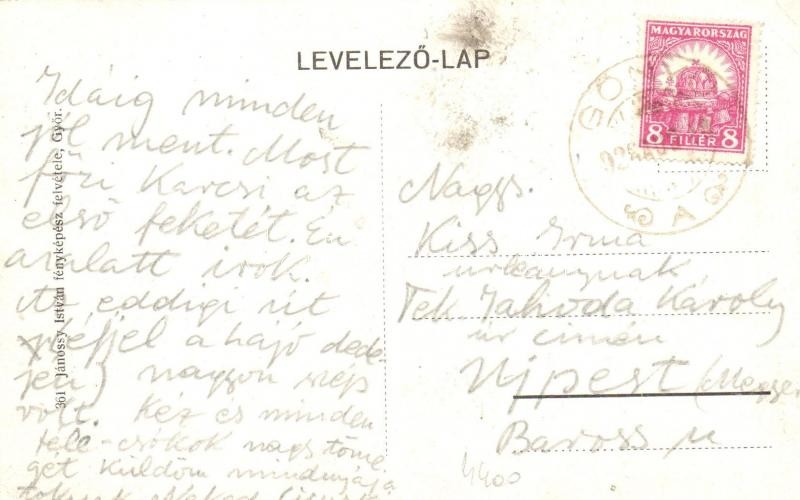 LEVELEZŐ-LAP
MAGYARORSZÁG
8 FILLÉR 8
361 Jánossy István fényképész felvétele, Győr.
Idáig minden
jól ment. Most
főzi Karcsi az
első feketét. Én
azalatt irok.
Az eddigi út
(éjjel a hajó dede-
jén) nagyon szép
volt. Kéz és minden
féle csókok nagy töme
gét küldöm mindnyája
Nagys.
Kiss Irma
urleánynak
Tek. Jahoda Károly
úr cimén
Ujpest (Megyer
Baross u
4400